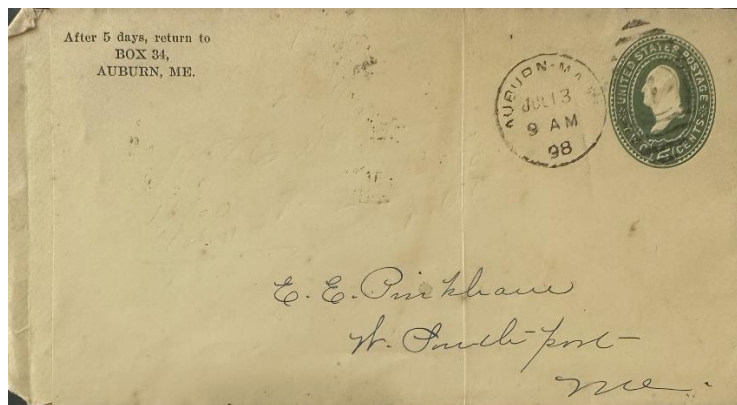 After 5 days, return to
BOX 34,
AUBURN, ME.
AUBURN-MAINE
JUL 13
9 AM
98
UNITED STATES POSTAGE
TWO 2 CENTS
E. E. Pinkham
W. Southport
Me.